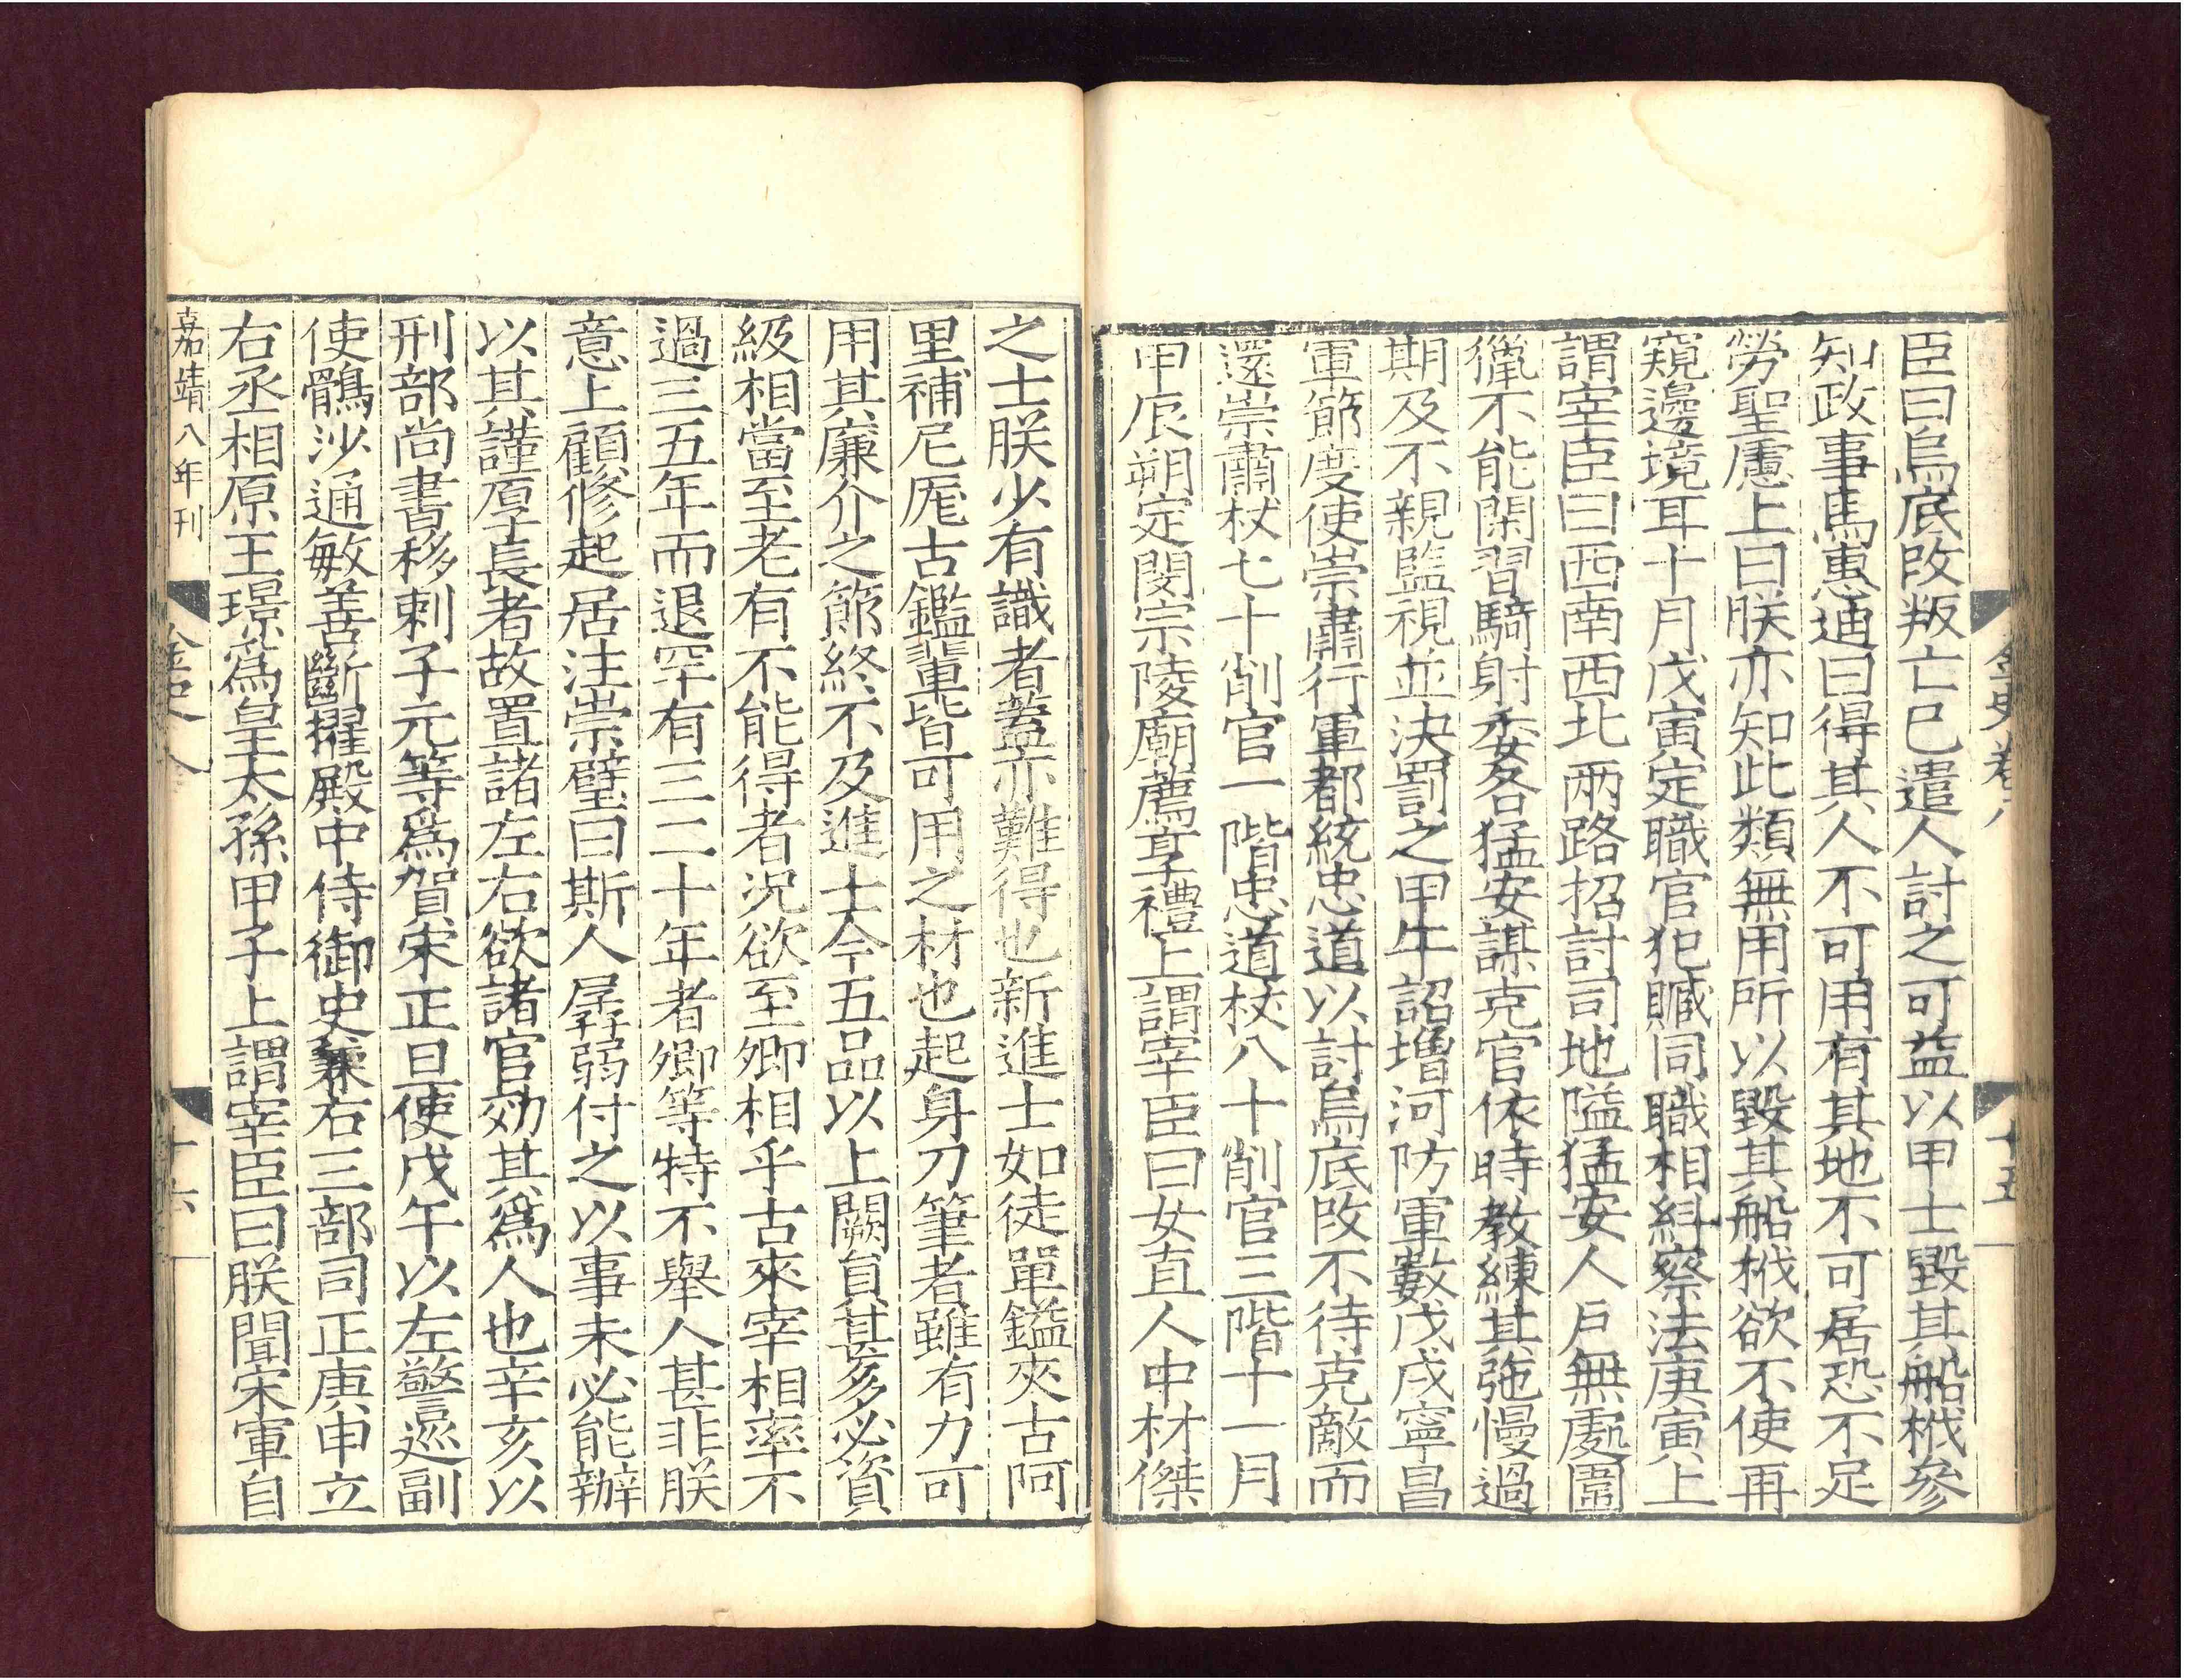 金史卷八
十五
臣曰烏底改叛亡已遣人討之可益以甲士毀其船栰參
知政事馬惠迪曰得其人不可用有其地不可居恐不足
勞聖慮上曰朕亦知此類無用所以毀其船栰欲不使再
窺邊境耳十月戊寅定職官犯贓同職相糾察法庚寅上
謂宰臣曰西南西北兩路招討司地隘猛安人戶無處圍
獵不能閑習騎射委各猛安謀克官依時教練其弛慢過
期及不親監視並決罰之甲午詔增河防軍數戊戌寧昌
軍節度使崇肅行軍都統忠道以討烏底改不待克敵而
還崇肅杖七十削官一階忠道杖八十削官三階十一月
甲辰朔定閔宗陵廟薦享禮上謂宰臣曰女直人中材傑
之士朕少有識者蓋亦難得也新進士如徒單鎰夾古阿
里補尼厖古鑑輩皆可用之材也起身刀筆者雖有力可
用其廉介之節終不及進士今五品以上闕員甚多必資
級相當至老有不能得者况欲至卿相乎古來宰相率不
過三五年而退罕有三二十年者卿等特不舉人甚非朕
意上顧修起居注崇璧曰斯人孱弱付之以事未必能辦
以其謹厚長者故置諸左右欲諸官効其爲人也辛亥以
刑部尚書移剌子元等爲賀宋正旦使戊午以左警巡副
使鶻沙通敏善斷擢殿中侍御史兼右三部司正庚申立
右丞相原王璟爲皇太孫甲子上謂宰臣曰朕聞宋軍自
嘉靖八年刊
金史八
十六